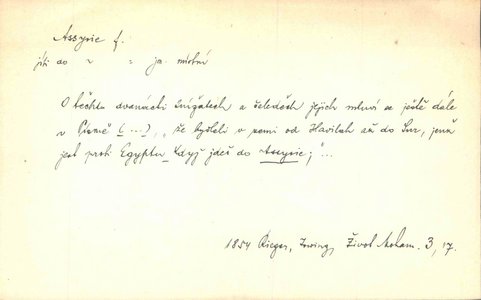 Assyrie f.
jíti do " " ja. místní
O těchto dvanácti knížatech a čeleděch jejich mluví se ještě dále
v Písmě (...), „že bydleli v zemi od Havilah až do Sur, jenž
jest proti Egyptu když jdeš do Assyrie;"...
1854 Rieger, Irving, Život Moham. 3, 17.